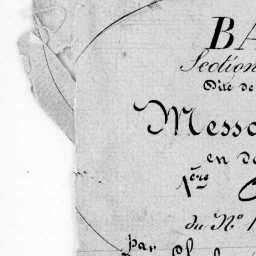 BA
Section
Dite de
Messo
en d
1ère
du N° 1
par